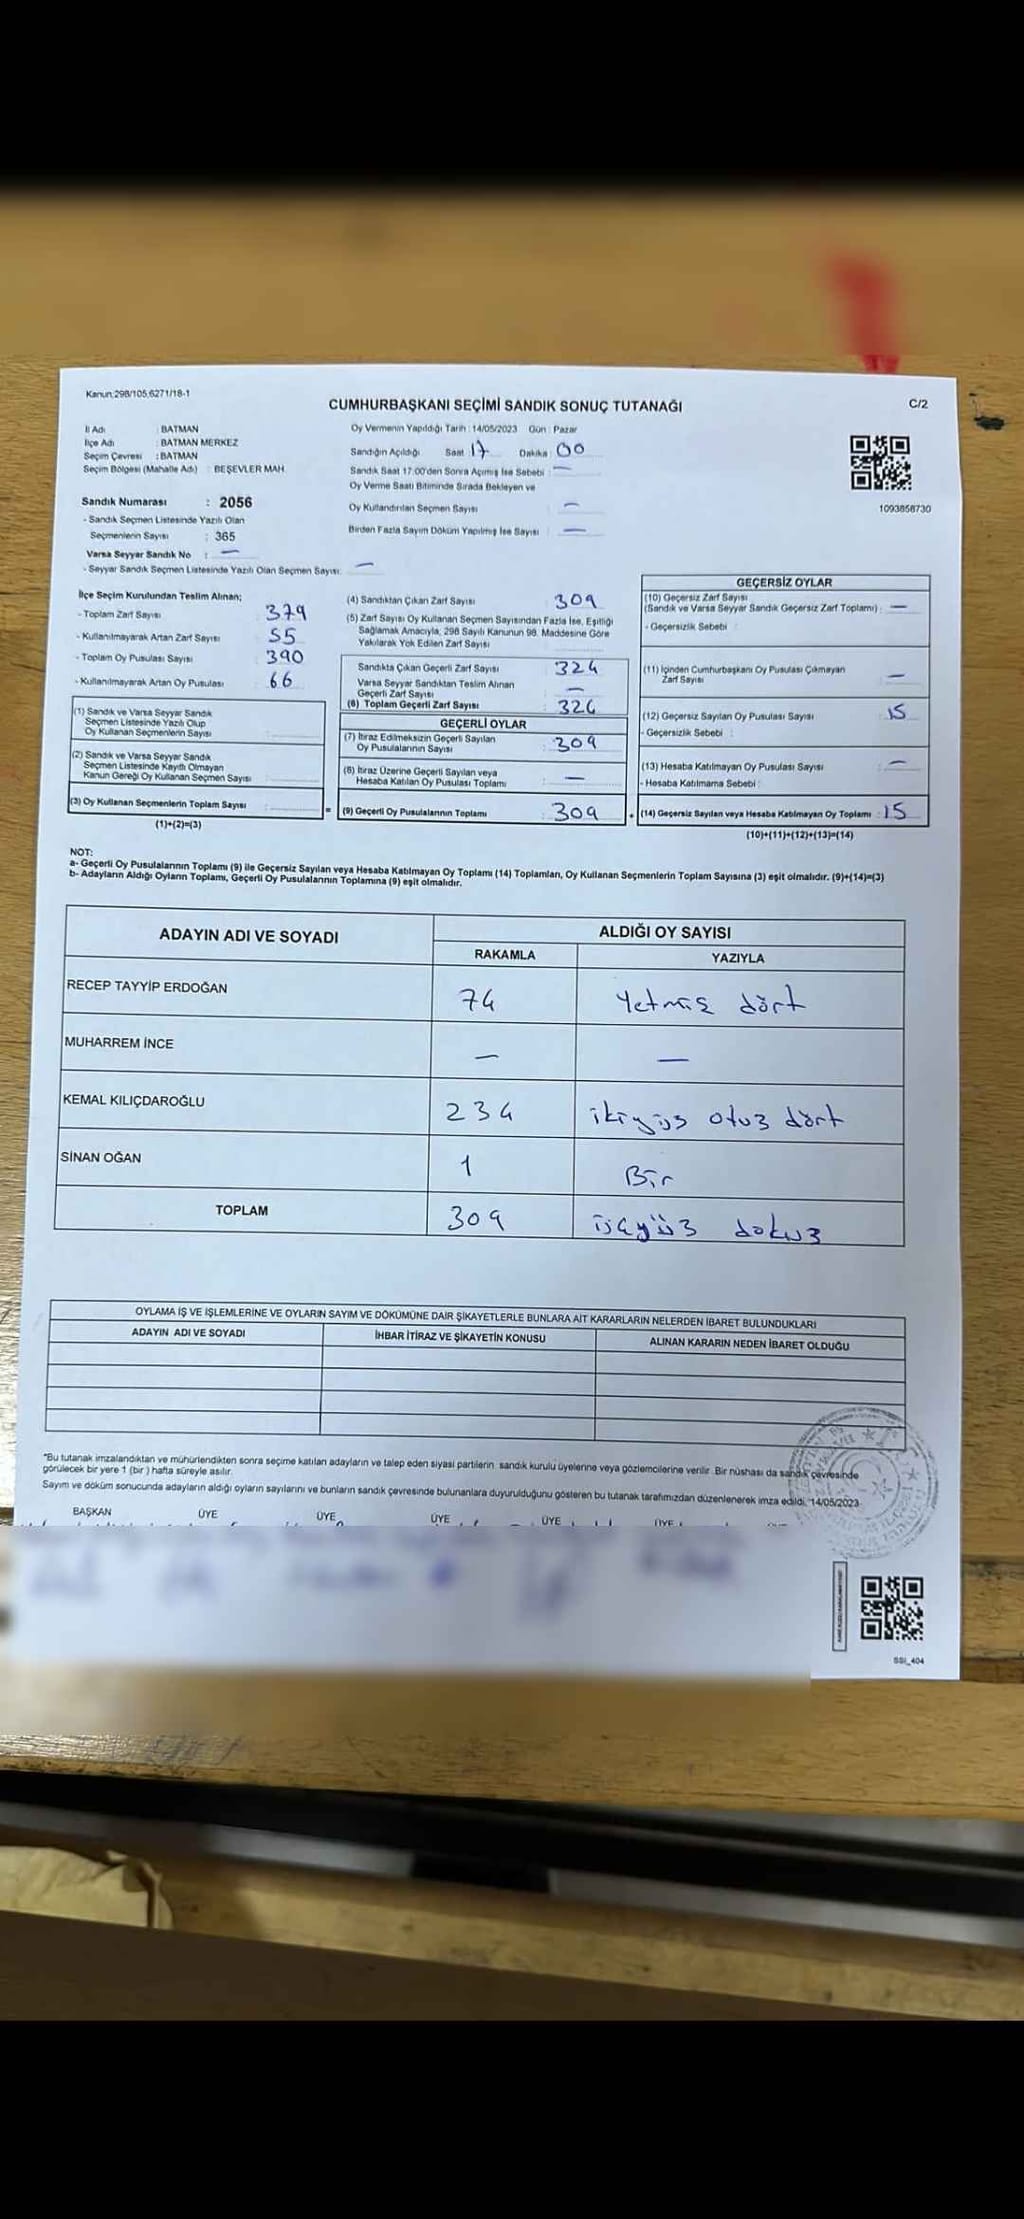 Kanun:298/105,6271/18-1
CUMHURBAŞKANI SEÇİMİ SANDIK SONUÇ TUTANAĞI
C/2
İl Adı : BATMAN
İlçe Adı : BATMAN MERKEZ
Seçim Çevresi : BATMAN
Seçim Bölgesi (Mahalle Adı) : BEŞEVLER MAH.
Sandık Numarası : 2056
- Sandık Seçmen Listesinde Yazılı Olan
Seçmenlerin Sayısı : 365
Varsa Seyyar Sandık No : —
- Seyyar Sandık Seçmen Listesinde Yazılı Olan Seçmen Sayısı: —
Oy Vermenin Yapıldığı Tarih : 14/05/2023 Gün : Pazar
Sandığın Açıldığı Saat 17 Dakika : 00
Sandık Saat 17:00'den Sonra Açımış İse Sebebi : —
Oy Verme Saati Bitiminde Sırada Bekleyen ve
Oy Kullandırılan Seçmen Sayısı —
Birden Fazla Sayım Döküm Yapılmış İse Sayısı : —
1093858730
İlçe Seçim Kurulundan Teslim Alınan;
- Toplam Zarf Sayısı 379
- Kullanılmayarak Artan Zarf Sayısı 55
- Toplam Oy Pusulası Sayısı 390
- Kullanılmayarak Artan Oy Pusulası 66
(1) Sandık ve Varsa Seyyar Sandık
Seçmen Listesinde Yazılı Olup
Oy Kullanan Seçmenlerin Sayısı :
(2) Sandık ve Varsa Seyyar Sandık
Seçmen Listesinde Kayıtlı Olmayan
Kanun Gereği Oy Kullanan Seçmen Sayısı :
(3) Oy Kullanan Seçmenlerin Toplam Sayısı :
(1)+(2)=(3)
(4) Sandıktan Çıkan Zarf Sayısı : 309
(5) Zarf Sayısı Oy Kullanan Seçmen Sayısından Fazla İse, Eşitliği
Sağlamak Amacıyla, 298 Sayılı Kanunun 98. Maddesine Göre
Yakılarak Yok Edilen Zarf Sayısı
Sandıkta Çıkan Geçerli Zarf Sayısı 324
Varsa Seyyar Sandıktan Teslim Alınan
Geçerli Zarf Sayısı —
(6) Toplam Geçerli Zarf Sayısı 324
GEÇERLİ OYLAR
(7) İtiraz Edilmeksizin Geçerli Sayılan
Oy Pusulalarının Sayısı : 309
(8) İtiraz Üzerine Geçerli Sayılan veya
Hesaba Katılan Oy Pusulası Toplamı : —
= (9) Geçerli Oy Pusulalarının Toplamı : 309
GEÇERSİZ OYLAR
(10) Geçersiz Zarf Sayısı
(Sandık ve Varsa Seyyar Sandık Geçersiz Zarf Toplamı) : —
- Geçersizlik Sebebi :
(11) İçinden Cumhurbaşkanı Oy Pusulası Çıkmayan
Zarf Sayısı : —
(12) Geçersiz Sayılan Oy Pusulası Sayısı : 15
- Geçersizlik Sebebi :
(13) Hesaba Katılmayan Oy Pusulası Sayısı : —
- Hesaba Katılmama Sebebi :
+ (14) Geçersiz Sayılan veya Hesaba Katılmayan Oy Toplamı : 15
(10)+(11)+(12)+(13)=(14)
NOT:
a- Geçerli Oy Pusulalarının Toplamı (9) ile Geçersiz Sayılan veya Hesaba Katılmayan Oy Toplamı (14) Toplamları, Oy Kullanan Seçmenlerin Toplam Sayısına (3) eşit olmalıdır. (9)+(14)=(3)
b- Adayların Aldığı Oyların Toplamı, Geçerli Oy Pusulalarının Toplamına (9) eşit olmalıdır.
ADAYIN ADI VE SOYADI
ALDIĞI OY SAYISI
RAKAMLA YAZIYLA
RECEP TAYYİP ERDOĞAN 74 Yetmiş dört
MUHARREM İNCE — —
KEMAL KILIÇDAROĞLU 234 ikiyüz otuz dört
SİNAN OĞAN 1 Bir
TOPLAM 309 üçyüz dokuz
OYLAMA İŞ VE İŞLEMLERİNE VE OYLARIN SAYIM VE DÖKÜMÜNE DAİR ŞİKAYETLERLE BUNLARA AİT KARARLARIN NELERDEN İBARET BULUNDUKLARI
ADAYIN ADI VE SOYADI İHBAR İTİRAZ VE ŞİKAYETİN KONUSU ALINAN KARARIN NEDEN İBARET OLDUĞU
*Bu tutanak imzalandıktan ve mühürlendikten sonra seçime katılan adayların ve talep eden siyasi partilerin sandık kurulu üyelerine veya gözlemcilerine verilir. Bir nüshası da sandık çevresinde
görülecek bir yere 1 (bir ) hafta süreyle asılır.
Sayım ve döküm sonucunda adayların aldığı oyların sayılarını ve bunların sandık çevresinde bulunanlara duyurulduğunu gösteren bu tutanak tarafımızdan düzenlenerek imza edildi. 14/05/2023
BAŞKAN ÜYE ÜYE ÜYE ÜYE ÜYE
SSI_404